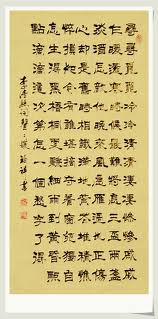 尋尋覓覓冷冷清清淒淒慘慘戚戚
乍暖還寒時候最難將息三盃兩盞
淡酒怎敵他晚來風急雁過也正傷
心却是舊時相識滿地黃花堆積憔
悴損如今有誰堪摘守着窗兒獨自
怎生得黑梧桐更兼細雨到黃昏點
點滴滴這次第怎一個愁字了得
李清照詞聲聲慢 書